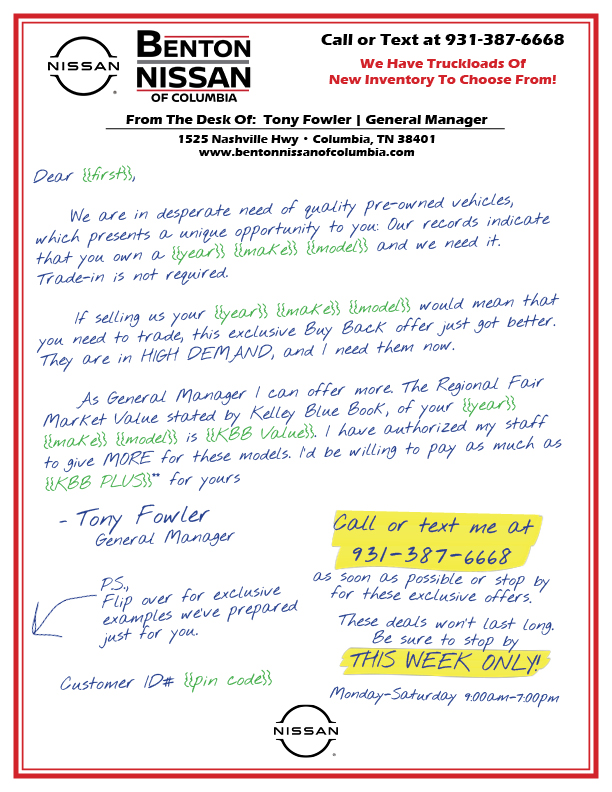 NISSAN
BENTON
NISSAN
OF COLUMBIA
Call or Text at 931-387-6668
We Have Truckloads Of
New Inventory To Choose From!
From The Desk Of: Tony Fowler | General Manager
1525 Nashville Hwy • Columbia, TN 38401
www.bentonnissanofcolumbia.com
Dear {{first}},
We are in desperate need of quality pre-owned vehicles,
which presents a unique opportunity to you: Our records indicate
that you own a {{year}} {{make}} {{model}} and we need it.
Trade-in is not required.
If selling us your {{year}} {{make}} {{model}} would mean that
you need to trade, this exclusive Buy Back offer just got better.
They are in HIGH DEMAND, and I need them now.
As General Manager I can offer more. The Regional Fair
Market Value stated by Kelley Blue Book, of your {{year}}
{{make}} {{model}} is {{KBB Value}}. I have authorized my staff
to give MORE for these models. I'd be willing to pay as much as
{{KBB PLUS}}** for yours
- Tony Fowler
General Manager
P.S.,
Flip over for exclusive
examples we've prepared
just for you.
Customer ID# {{pin code}}
Call or text me at
931-387-6668
as soon as possible or stop by
for these exclusive offers.
These deals won't last long.
Be sure to stop by
THIS WEEK ONLY!
Monday-Saturday 9:00am-7:00pm
NISSAN